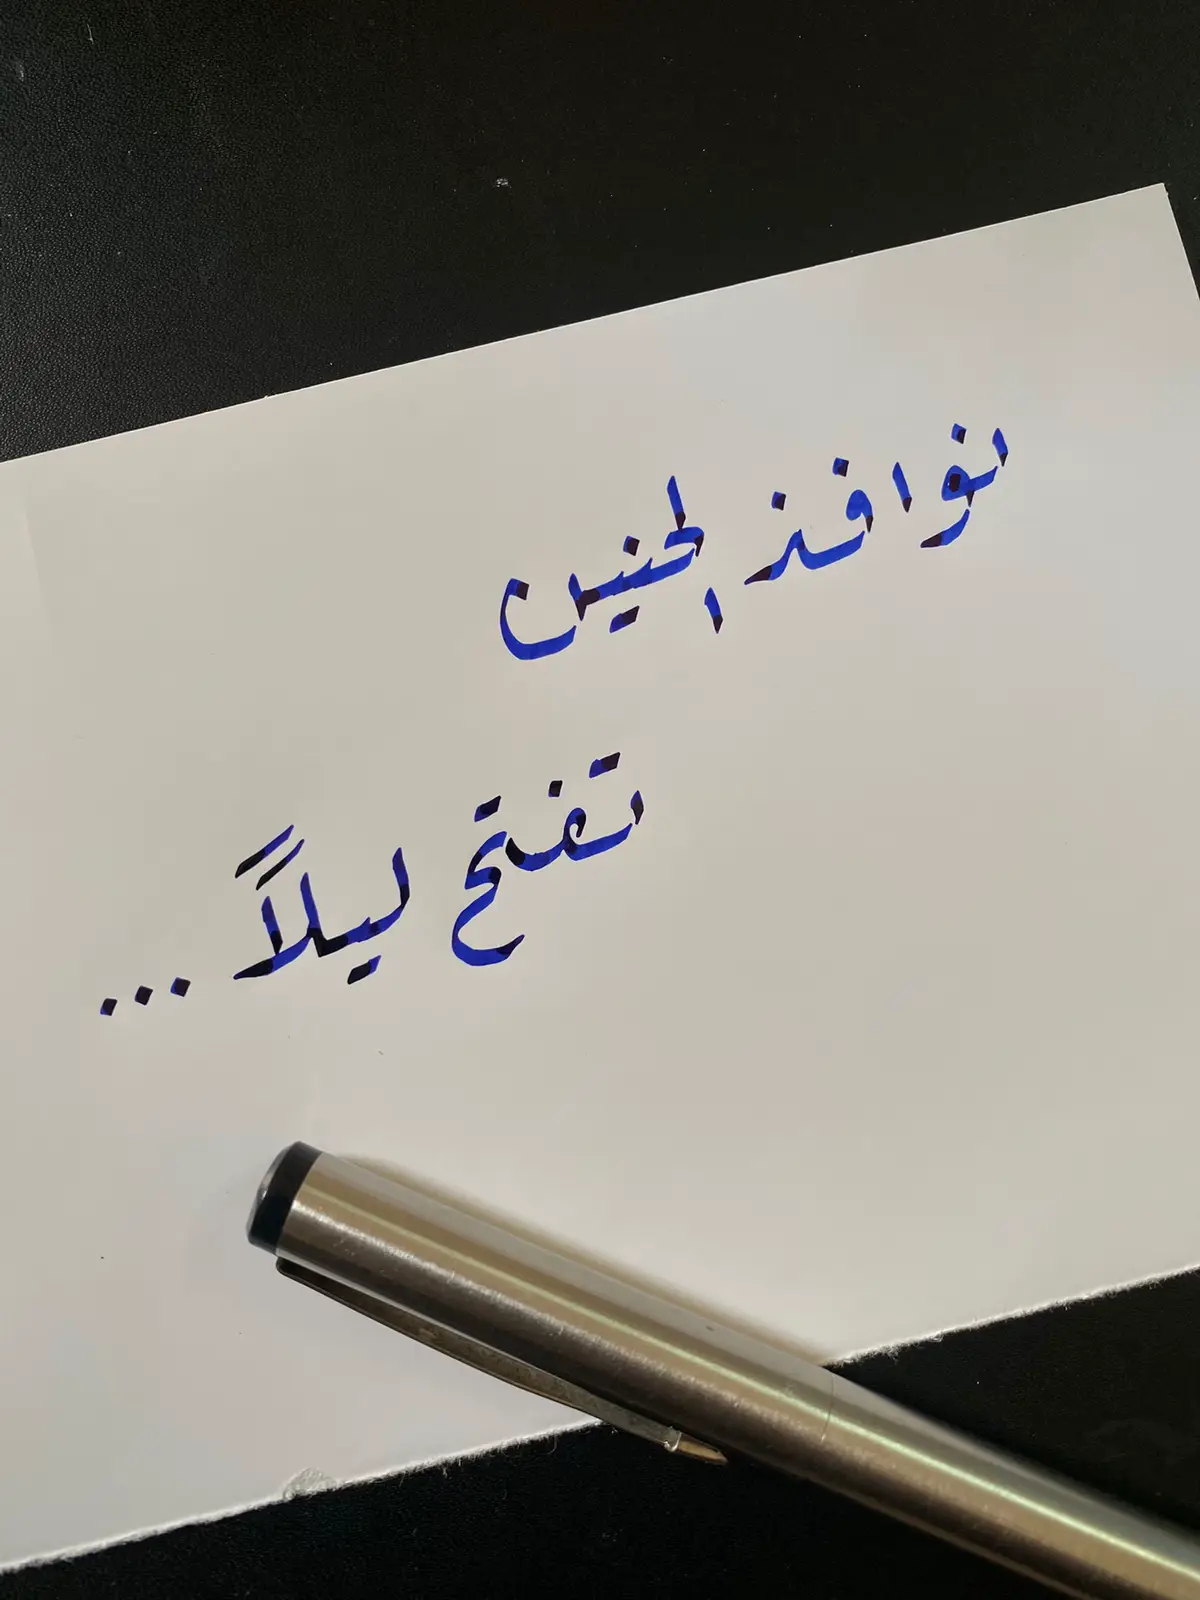 نوافذ الحنين
تفتح ليلاً ...